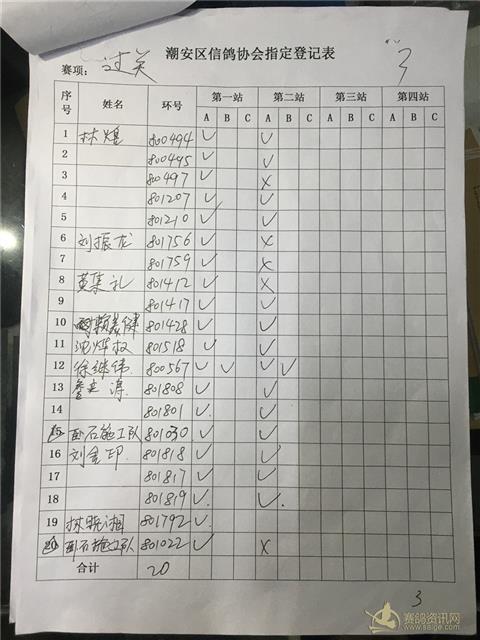 潮安区信鸽协会指定登记表
赛项: 过关
3
序号 姓名 环号 第一站 第二站 第三站 第四站
A B C A B C A B C A B C
1 林煌 800494 ✓ ✓
2 800445 ✓ ✓
3 800497 ✓ ✗
4 801207 ✓ ✓
5 801210 ✓ ✓
6 刘振龙 801756 ✓ ✗
7 801759 ✓ ✗
8 黄集礼 801412 ✓ ✗
9 801417 ✓ ✓
10 801428 ✓ ✓
11 801518 ✓ ✓
12 徐继伟 800567 ✓ ✓ ✓ ✓
13 801808 ✓ ✓
14 801801 ✓ ✓
15 石施工队 801030 ✓ ✓
16 刘金印 801818 ✓ ✓
17 801817 ✓ ✓
18 801819 ✓ ✓
19 林晓湘 801792 ✓
20 石施工队 801022 ✓ ✗
合计 20
3
赛鸽资讯网
www.saige.com